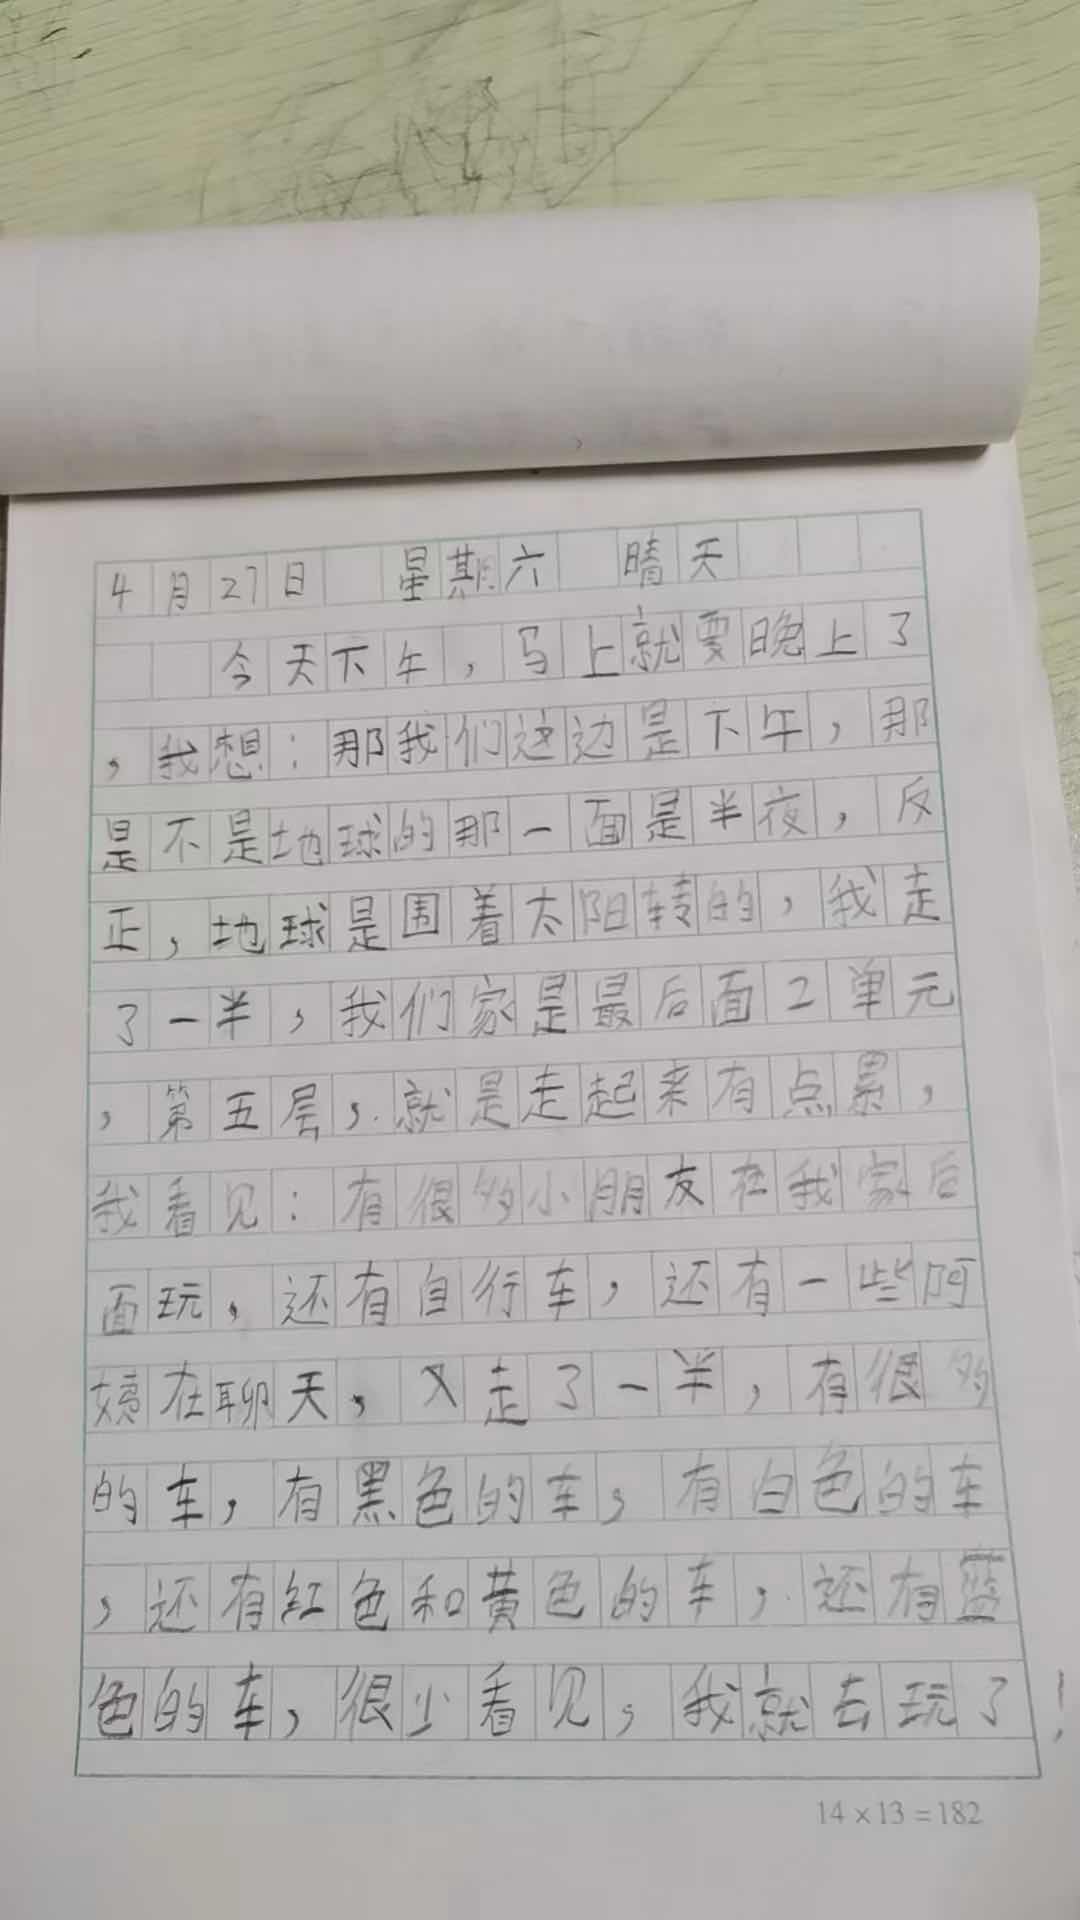 4月27日 星期六 晴天
今天下午，马上就要晚上了
，我想：那我们这边是下午，那
是不是地球的那一面是半夜，反
正，地球是围着太阳转的，我走
了一半，我们家是最后面2单元
，第五层，就是走起来有点累，
我看见：有很多小朋友在我家后
面玩，还有自行车，还有一些阿
姨在聊天，又走了一半，有很多
的车，有黑色的车，有白色的车
，还有红色和黄色的车，还有蓝
色的车，很少看见，我就去玩了！
14×13=182